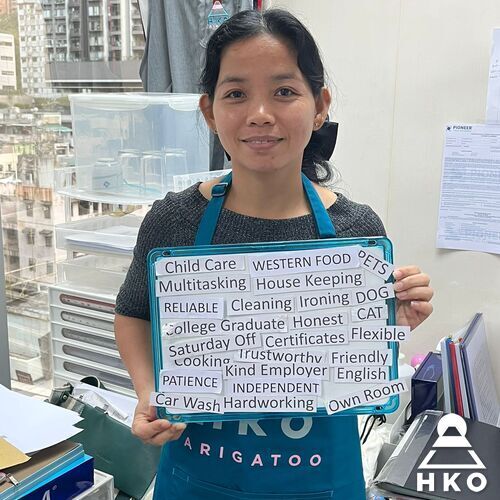 PIONEER
Child Care WESTERN FOOD PETS
Multitasking House Keeping
RELIABLE Cleaning Ironing DOG
College Graduate Honest CAT
Saturday Off Certificates Flexible
Cooking Trustworthy Friendly
Kind Employer English
PATIENCE INDEPENDENT
Car Wash Hardworking Own Room
HKO
ARIGATOO
HKO